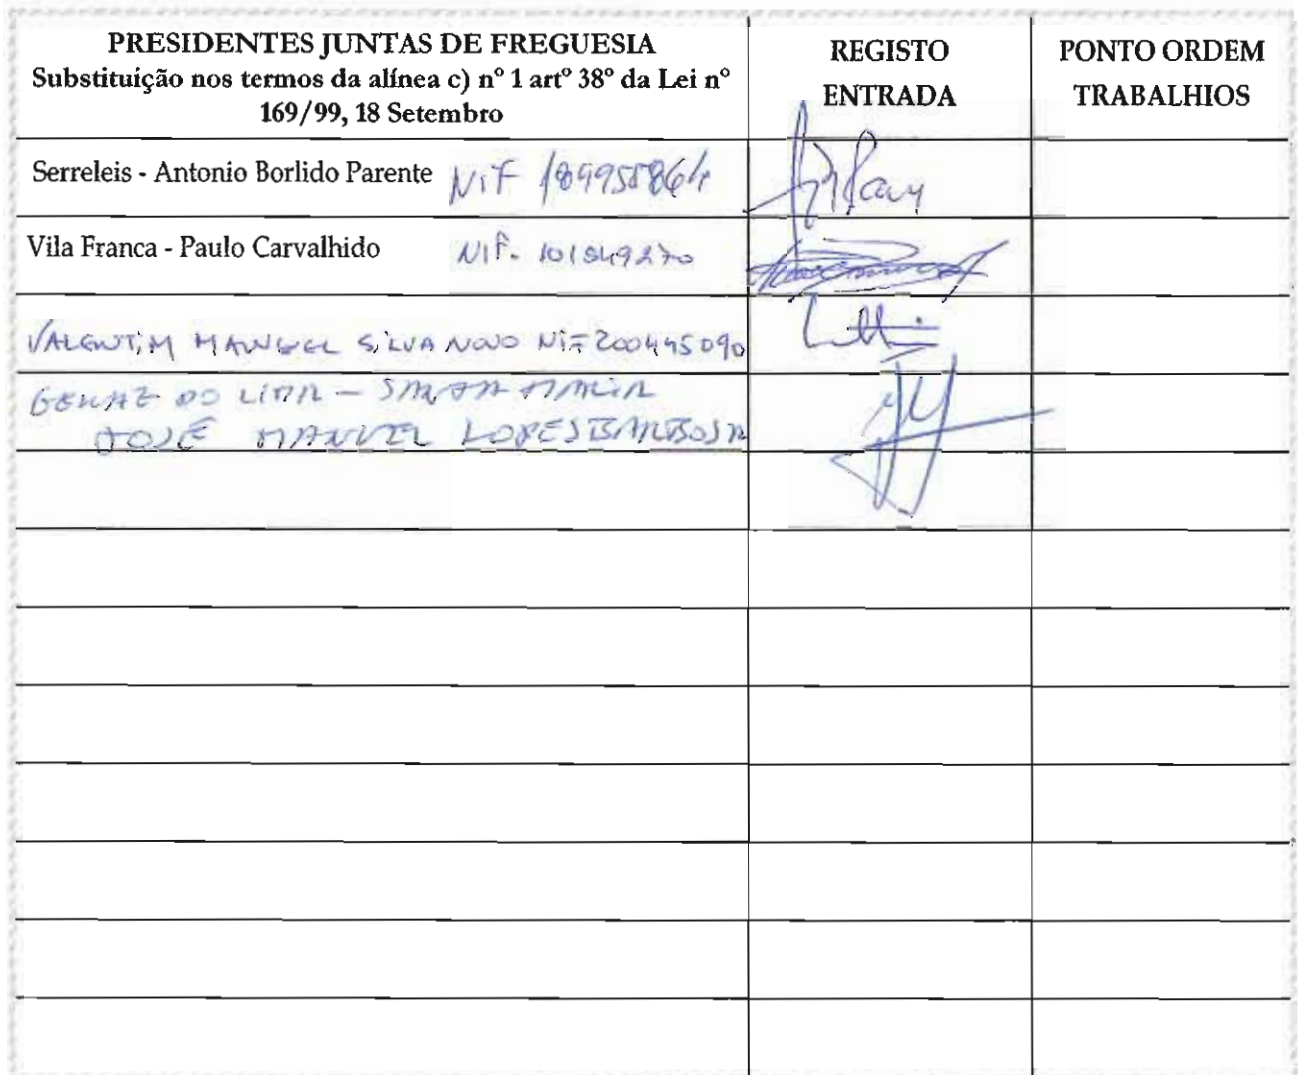 PRESIDENTES JUNTAS DE FREGUESIA
Substituição nos termos da alínea c) nº 1 artº 38º da Lei nº
169/99, 18 Setembro
REGISTO
ENTRADA
PONTO ORDEM
TRABALHIOS
Serreleis - Antonio Borlido Parente NiF 189958864
Vila Franca - Paulo Carvalhido NIF. 101549270
VALENTIM MANUEL SILVA NOVO NIF 200445090
GERAZ DO LIMA - SANTA MARIA
JOSÉ MANUEL LOPES BARBOSA